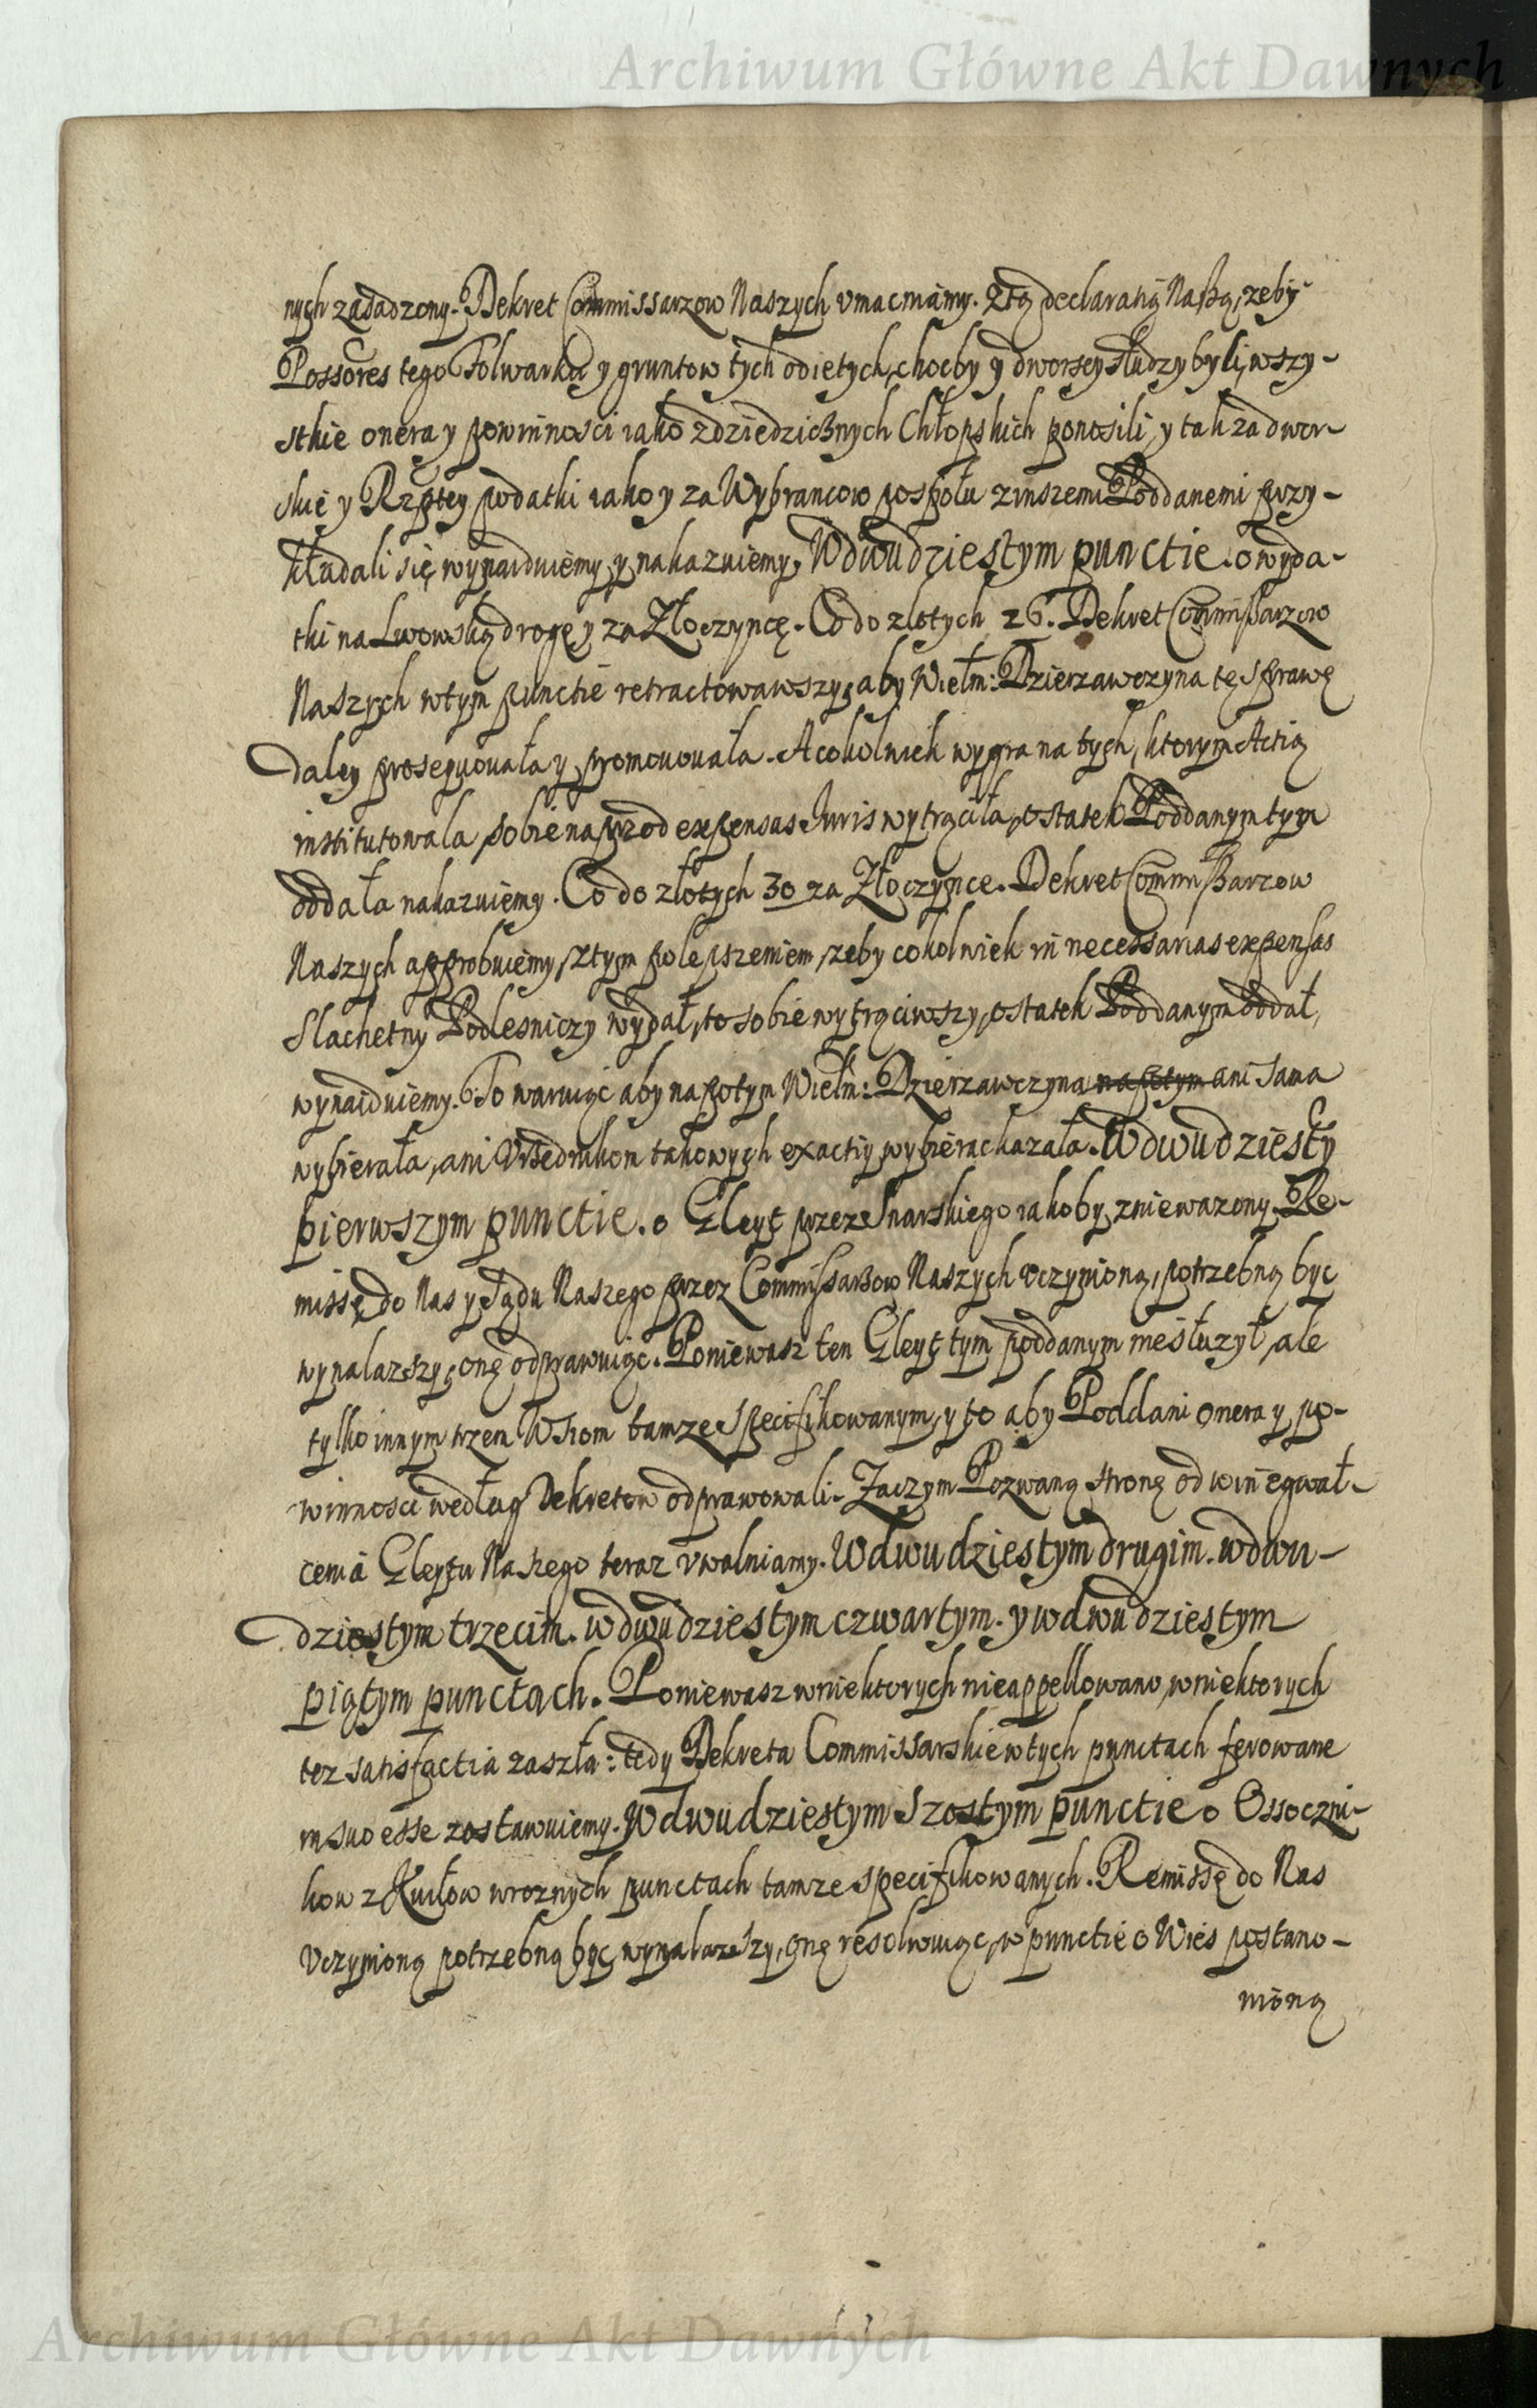 Archiwum Główne Akt Dawnych
nych zasadzony. Dekret Commissarzow Naszych vmacniamy. Ztą declaratią Naßą, zeby
Possores tego Folwarku y gruntow tych odietych, chocby y dworscy słudzy byli, wszy-
stkie onera y powinnosci iako zdziedzicznych Chłopskich ponosili, y tak za dwor-
skie y Rzptey podatki iako y za Wybrancow pospołu zinszemi Poddanemi przy-
kładali się wynaiduiemy, y nakazuiemy, Wdwudziestym punctie. o wyda-
tki na Lwowską drogę y za Złoczyncę. Co do zlotych 26. Dekret Commißarzow
Naszych wtym punctie retractowawszy, aby Wielm: Dzierzawczyna tę sprawę
daley prosequowała y promouowała. A cokolwiek wygra na tych, ktorym Actią
institutowala, sobie naprzod expensas Iuris wytrąciła, ostatek Poddanym tym
oddała nakazuiemy. Co do złotych 30 za Złoczynce. Dekret Commißarzow
Naszych approbuiemy, ztym polepszeniem, zeby cokolwiek in necessarias expensas
Slachetny Podlesniczy wydał, to sobie wytrąciwszy, ostatek Poddanym oddał,
wynaiduiemy. To waruiąc aby napotym Wielm: Dzierzawczyna na potym ani sama
wybierała, ani Vrzednikom takowych exactiy wybierac kazała. Wdwudziesty
pierwszym punctie. o Gleyt przez Snarskiego iakoby zniewazony. Re-
missę do Nas y Sądu Naszego przez Commissarzow Naszych vczynioną, potrzebną byc
wynalazszy, onę odprawuiąc. Poniewasz ten Gleyt tym poddanym niesłuzył, ale
tylko innym trzem Wsiom tamze specifikowanym, y to aby Poddani onera y po-
winnosci według Dekretow odprawowali. Zaczym Pozwaną stronę od winy egwał-
cenia Gleytu Naszego teraz vwalniamy. Wdwudziestym drugim. wdwu-
dziestym trzecim. wdwudziestym czwartym. y wdwudziestym
piątym punctach. Poniewasz wniektorych nieappellowano, wniektorych
tez satisfactia zaszła: tedy Dekreta Commissarskie wtych punctach ferowane
in suo esse zostawuiemy. Wdwudziestym Szostym punctie o Ossoczni-
kow z Kuiłow wroznych punctach tamze specifikowanych. Remissę do Nas
vczynioną potrzebną byc wynalazszy, onę resolwuiąc, w punctie o Wies postano-
nioną
Archiwum Główne Akt Dawnych